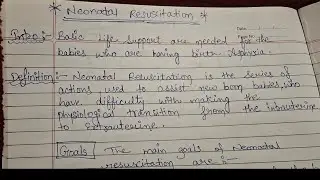 * Neonatal Resuscitation *
Intro :- Basic Life Support are needed for the
babies who are having birth Asphyxia.
Definition:- Neonatal Resuscitation is the series of
actions used to assist new born babies, who
have difficulty with making the
physiological transition from the intrauterine
to Extrauterine.
Goals The main goals of Neonatal
resuscitation are :-